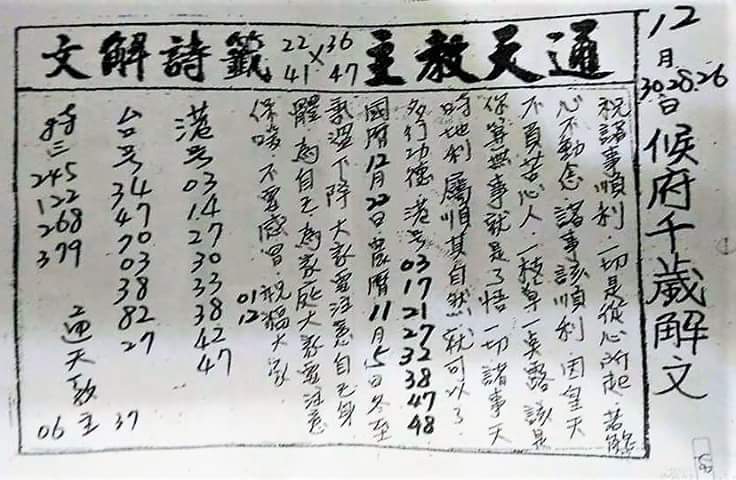 12月30.28.26日候府千歲解文
通天教主 22 41 × 36 47 籤詩解文
祝諸事順利.一切是從心所起.若能
心不動念.諸事該順利.因皇天
不負苦心人.一枝草一点露.該是
你.算無事就是了悟一切諸事.天
時地利.屬順其自然就可以了.
多行功德.港号03 17 21 27 32 38 47 48
國曆12月22日.農曆11月15日冬至
氣溫下降.大家要注意自己身
體.為自己.為家庭大家要注意
保暖.不要感冒.祝福大家
01 12
港号03 14 27 30 33 38 42 47
台号34 47 70 03 38 82 27
特三245 122 268 379
通天教主
06
37